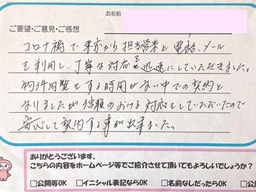 お名前
ご要望・ご意見・ご感想
コロナ禍で来店から担当営業と電話、メール
を利用し、丁寧な対応を迅速にしていただきました。
物件内覧をする時間がない中での契約と
なりましたが信頼のおける対応をしていただいたので
安心して契約する事が出来ました。
ありがとうございます。
こちらの内容をホームページ等でご紹介させて頂いてもよろしいでしょうか？
□公開等OK □イニシャル表記ならOK □名前なしだったらOK